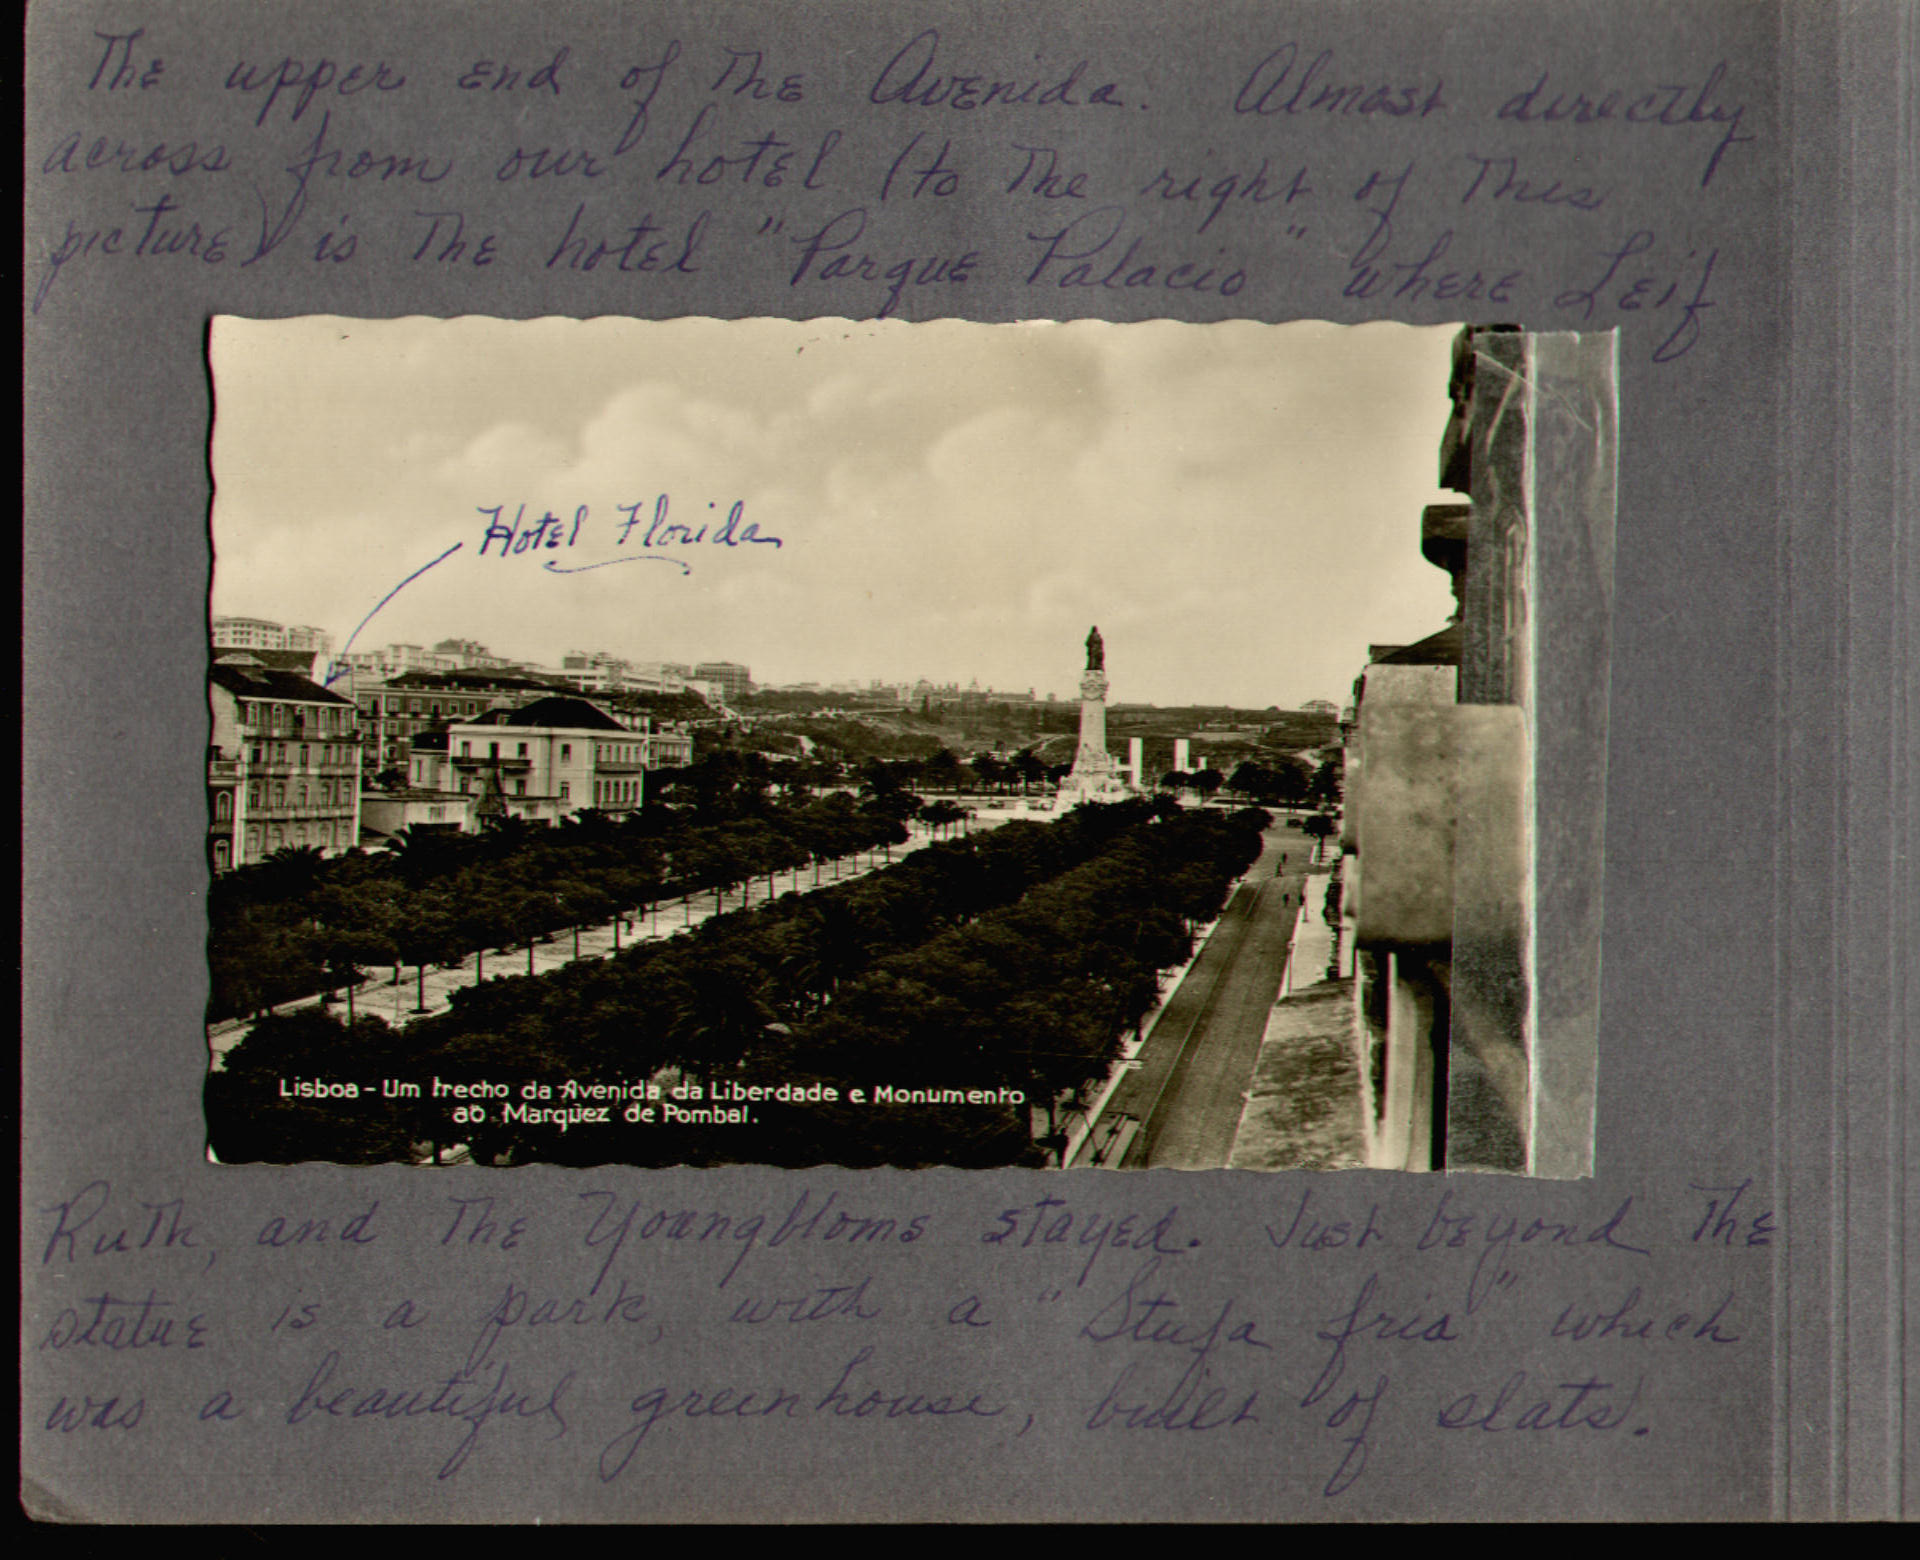 The upper end of the Avenida. Almost directly
across from our hotel (to the right of this
picture) is the hotel "Parque Palacio" where Leif
Hotel Florida
Lisboa - Um trecho da Avenida da Liberdade e Monumento
ao Marquez de Pombal.
Ruth, and the Youngbloms stayed. Just beyond the
statue is a park, with a "Stufa fria" which
was a beautiful greenhouse, built of slats.